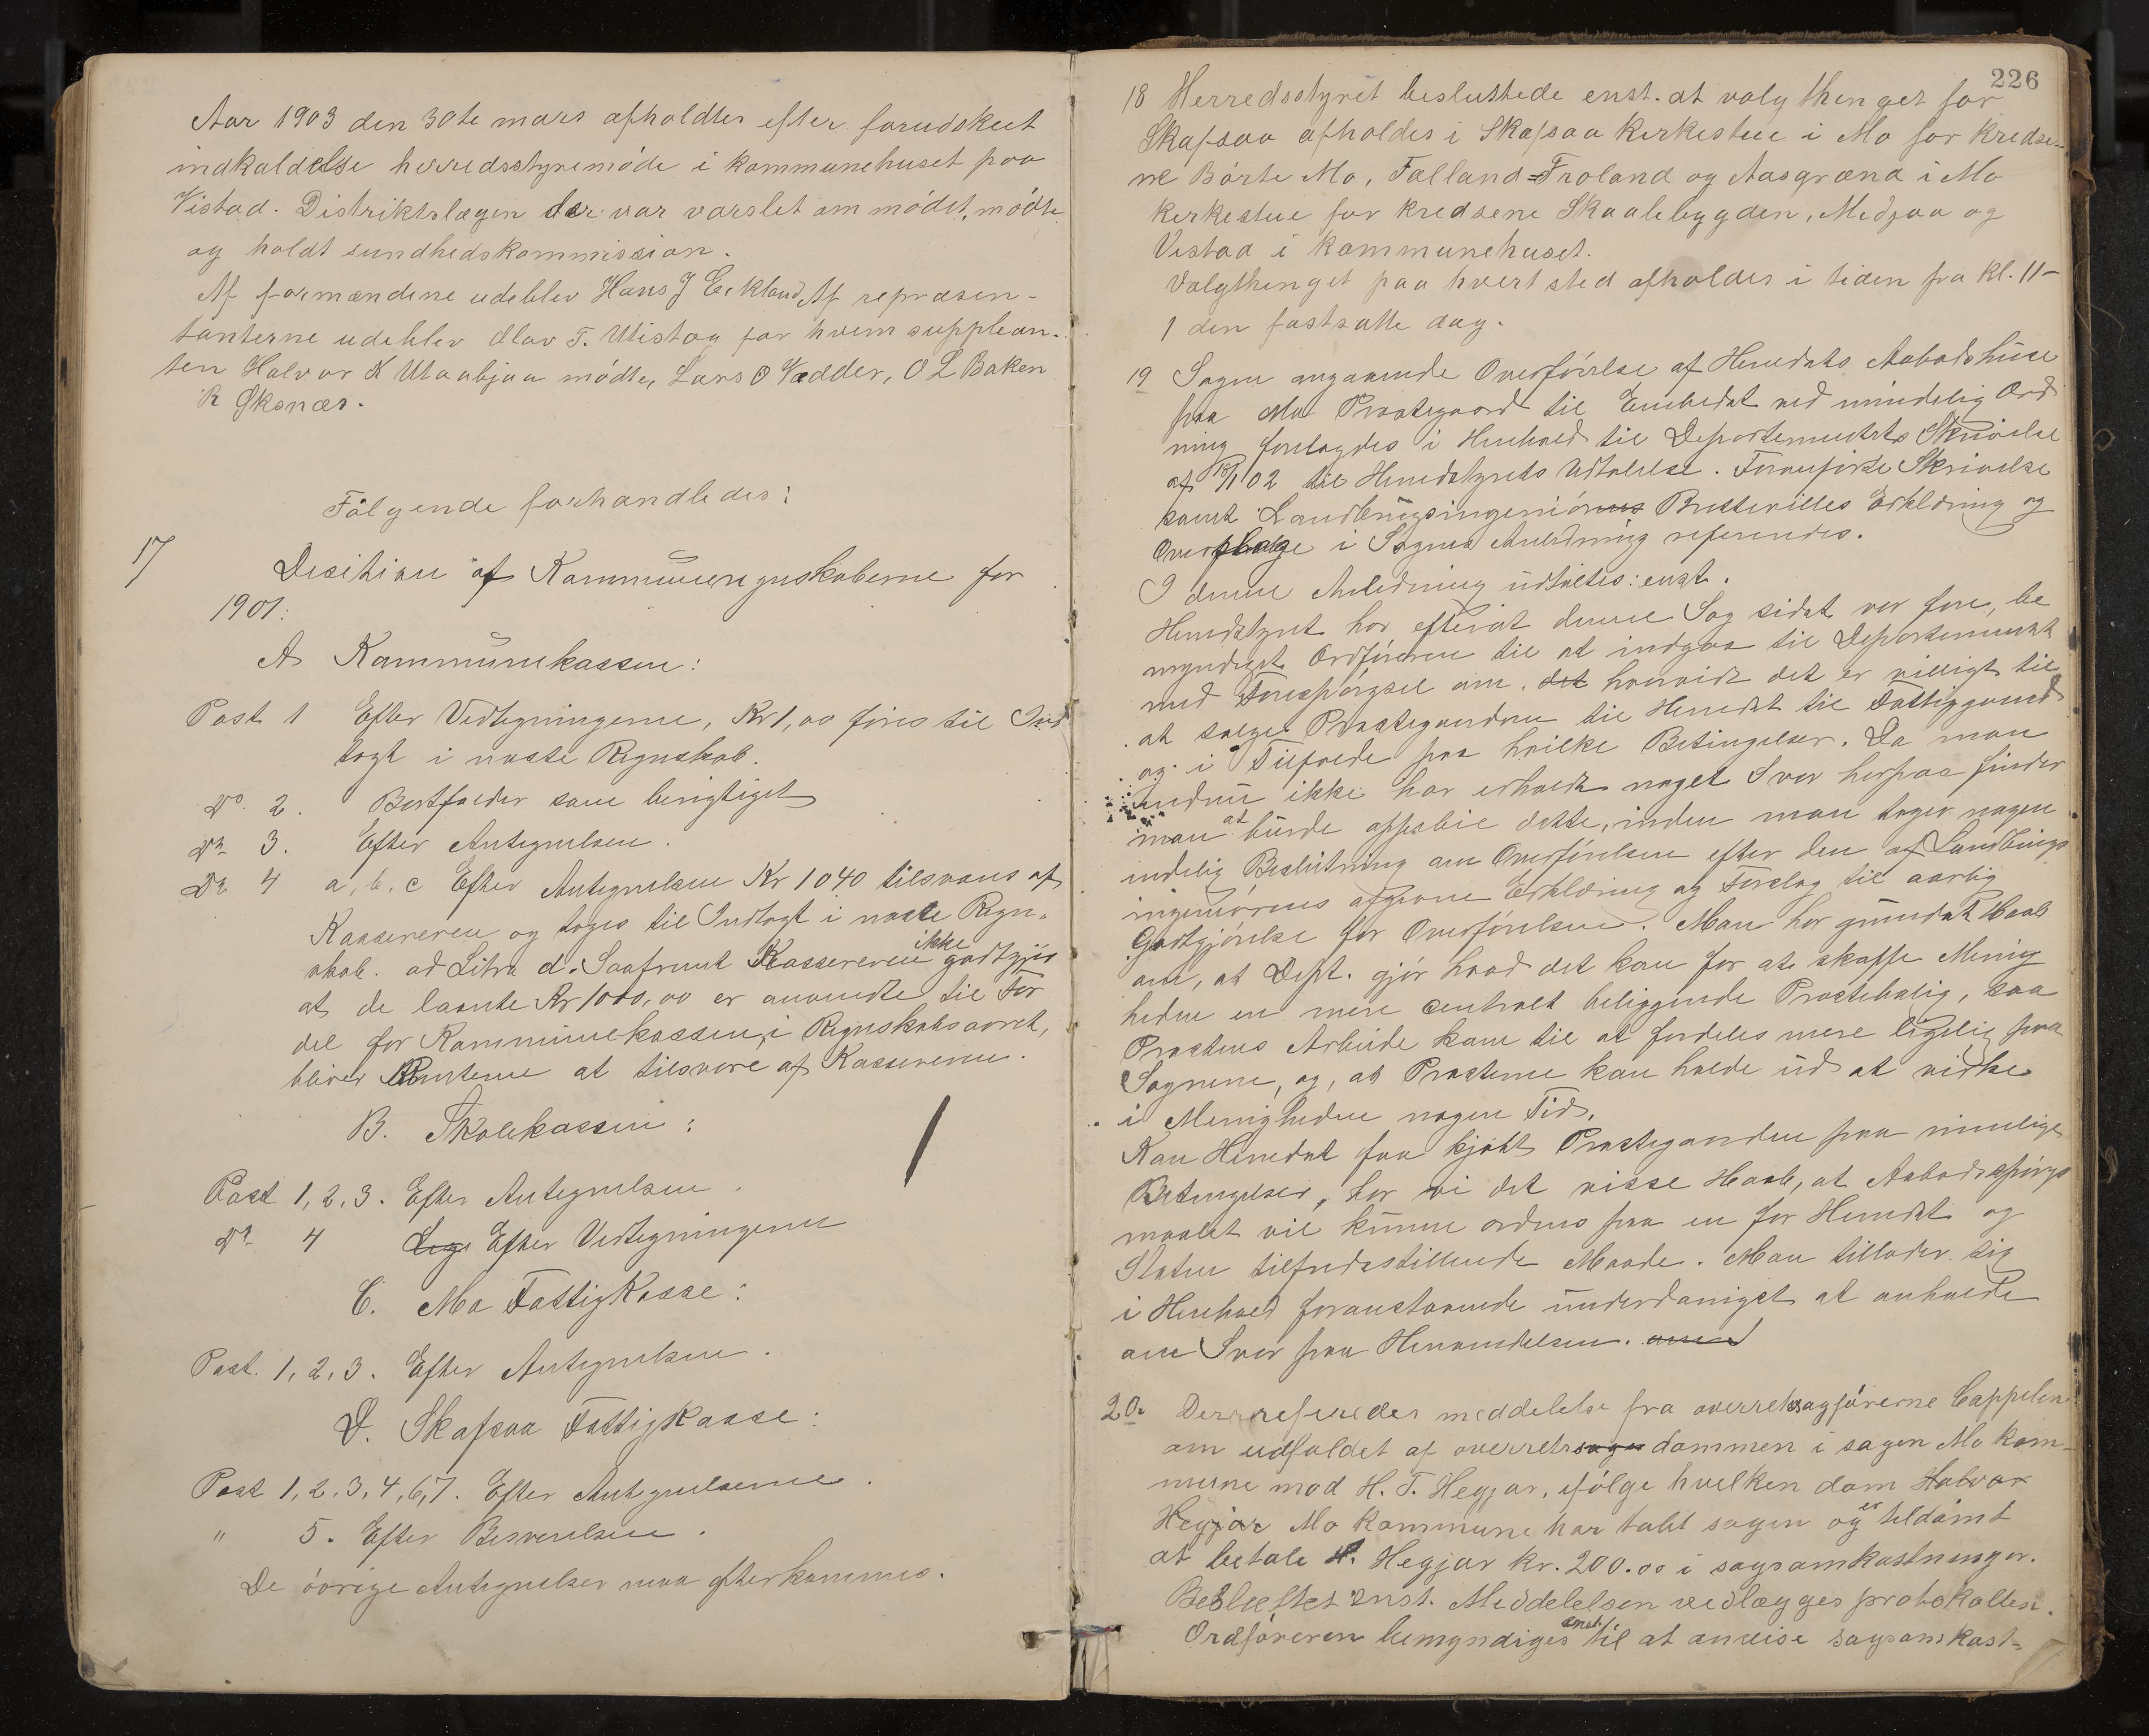 Aar 1903 den 30te mars afholdtes efter forudskeet
indkaldelse herredsstyremöde i kommunehuset paa
Vistad. Distriktslægen der var varslet om mödet, mödte
og holdt sundhedskommission.
Af formændene udeblev Hans J Eekland, Af repræsen-
tanterne udeblev Olav T. Utistog for hvem supplean-
ten Halvor K Utaabjaa mödte, Lars O Vadder, O L Baken
R Oksnær.
Fölgende forhandledes:
17
Desition af Kommuneregnskaberne for
1901:
A Kommunekassen:
Post 1 Efter Vedtegningerne, Kr 1,00 föres til Ind
tægt i næste Regnskab.
Do 2. Bortfalder som berigtiget
Do 3. Efter Antegnelsen.
Do 4 a, b, c Efter Antegnelsen Kr 1040 tilsvares af
Kassereren og tages til Indtægt i næste Regn-
skab. ad Litra d. Saafremt Kassereren ikke godtgjör
at de laante Kr 1000,00 er anvendte til For
del for Kommunekassen i Regnskabsaaret,
bliver Renterne at tilsvare af Kassereren.
B. Skolekassen:
Post 1, 2, 3. Efter Antegnelsen.
Do 4 Lige Efter Vedtegningerne
C. Mo Fattigkasse:
Post. 1, 2, 3. Efter Antegnelsen.
D. Skafsaa Fattigkasse:
Post 1, 2, 3, 4, 6, 7. Efter Antegnelserne.
" 5. Efter Besvarelsen.
De övrige Antegnelser maa efterkommes.
226
18 Herredsstyret besluttede enst. at valgthinget for
Skafsaa afholdes i Skafsaa kirkestue i Mo for kredse-
ne Börte Mo, Falland=Froland og Aasgrænd i Mo
kirkestue for kredsene Skaalebygden, Medjaa og
Vistad i kommunehuset.
Valgthinget paa hvert sted afholdes i tiden fra kl. 11-
1 den fastsatte dag.
19 Sagen angaaende Overförelse af Herredets Aabodshuse
paa Mo Prestegaard til Embedet ved mindelig Ord
ning forelagdes i Henhold til Departementets Skrivelse
af 18/1 02 til Herredstyrets Udtalelse. Foranförte Skrivelse
samt Landbrugsingeniörens Erklæring og
Overslag i Sagens Anledning refereredes.
I denne Anledning udtaltes: enst.
Herredstyret har efterat denne Sag sidst var fore, be
myndiget Ordföreren til at indgaa til Departementet
med Forespörgsel om, det hvorvidt det er villigt til
at sælge Prestegaarden til Herredet til Fattiggaard
og i Tilfælde paa hvilke Betingelser. Da man
endnu ikke har erholdt noget Svar herpaa finder
man at burde oppebie dette, inden man tager nogen
endelig Beslutning om Overförelsen efter den af Landbrugs
ingeniörens afgivne Erklæring og Forslag til aarlig
Godtgjörelse for Overförelsen. Man har grundet Haab
om, at Dept. gjör hvad det kan for at skaffe Menig
heden en mere centralt beliggende Prestebolig, saa
Prestens Arbeide kan til at fordeles mere ligelig paa
Sognene, og, at Presterne kan holde ud at virke
i Menigheden nogen Tid.
Kan Herredet faa kjöbt Prestegaarden paa rimelige
Betingelser, har vi det visse Haab, at Aabodsspörgs
maalet vil kunne ordnes paa en for Herredet og
Staten tilfredsstillende Maade. Man tillader sig
i Henhold foranstaaende underdanigst at anholde
om Svar paa Henvendelsen.
20. Der refereredes meddelelse fra overretssagförerne Cappelen
om udfaldet af overretssagen dommen i sagen Mo kom-
mune mod H. T. Hegjar, ifölge hvilken dom Halvor
Hegjar Mo kommune har tabt sagen og er tildömt
at betale H. Hegjar kr. 200.00 i sagsomkostninger.
Besluttet enst. Meddelelsen vedlægges protokollen.
Ordföreren bemyndiges enst. til at anvise sagsomkost=